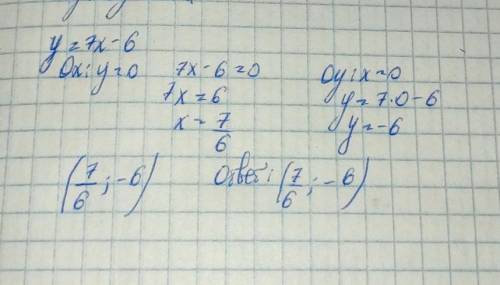 y = 7x - 6
Ox: y = 0 7x - 6 = 0 Oy: x = 0
7x = 6 y = 7·0 - 6
x = 7/6 y = -6
(7/6; -6) Ответ: (7/6; -6)